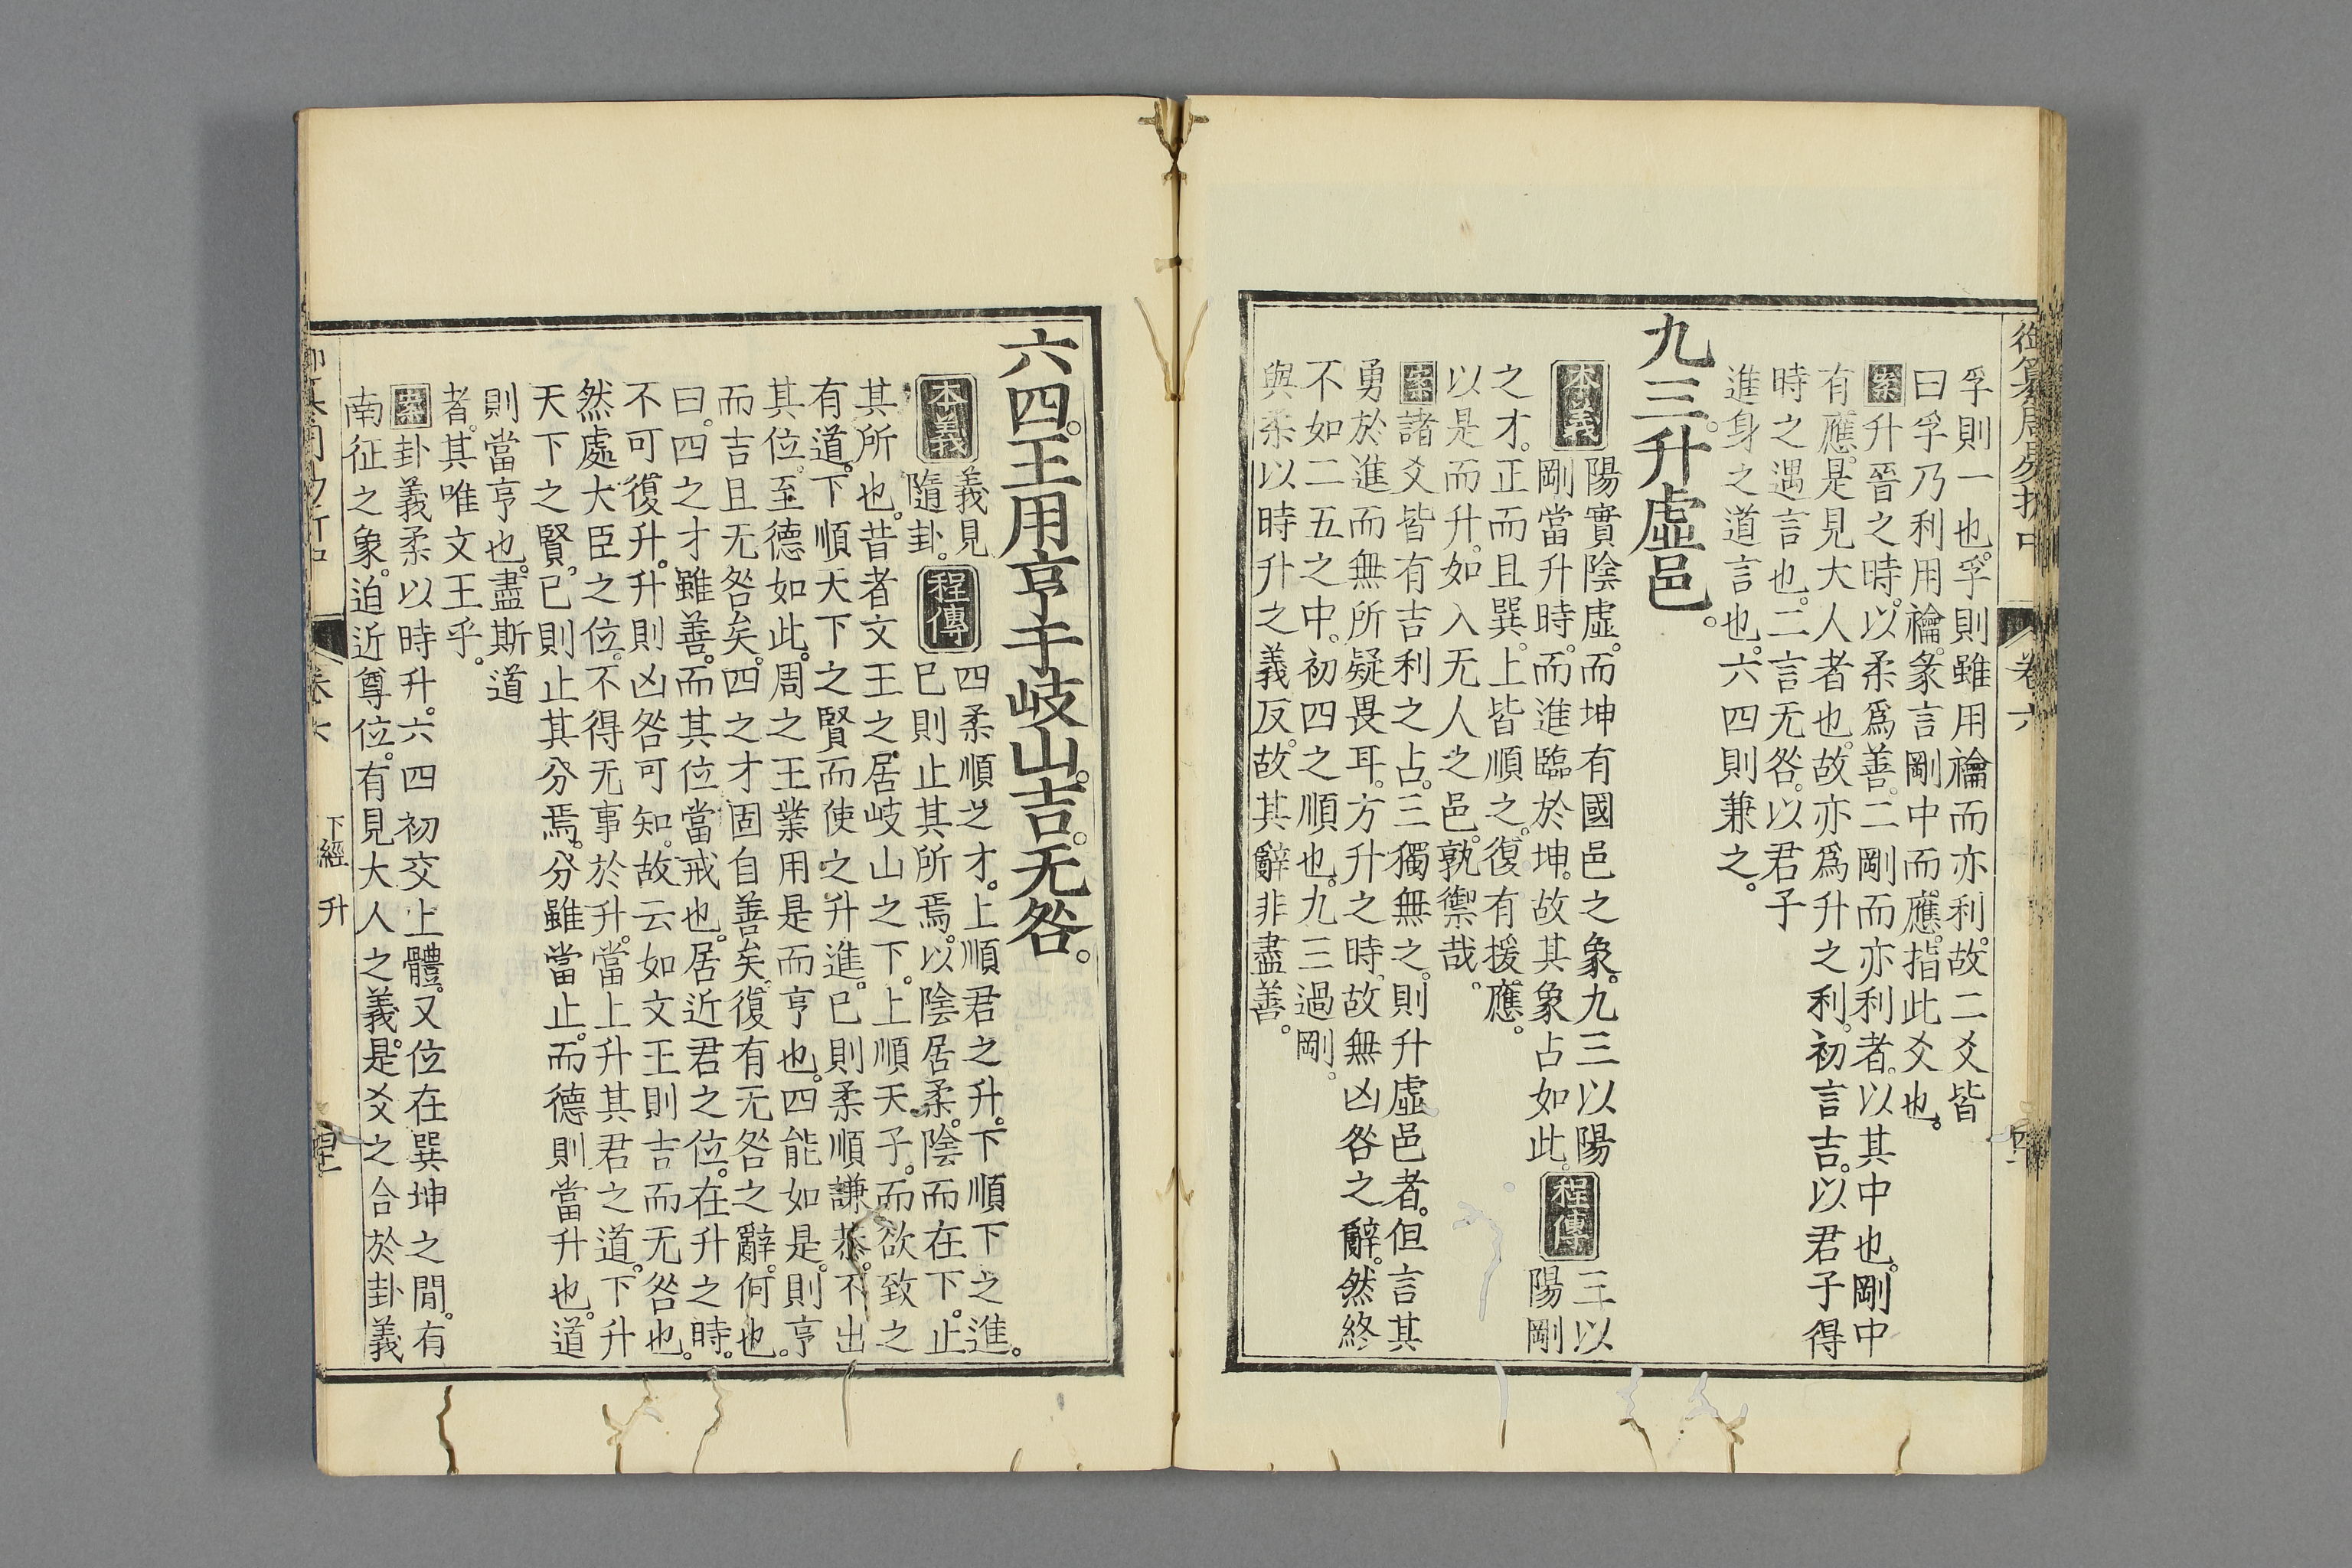 御纂周易折中　卷六
孚則一也。孚則雖用禴而亦利。故二爻皆
曰孚乃利用禴。彖言剛中而應。指此爻也。
案升晉之時。以柔爲善。二剛而亦利者。以其中也。剛中
有應。是見大人者也。故亦爲升之利。初言吉。以君子得
時之遇言也。二言无咎。以君子
進身之道言也。六四則兼之。
九三。升虛邑。
本義
陽實陰虛。而坤有國邑之象。九三以陽
剛當升時。而進臨於坤。故其象占如此。
程傳
三以
陽剛
之才。正而且巽。上皆順之。復有援應。
以是而升。如入无人之邑。孰禦哉。
案諸爻皆有吉利之占。三獨無之。則升虛邑者。但言其
勇於進而無所疑畏耳。方升之時。故無凶咎之辭。然終
不如二五之中。初四之順也。九三過剛。
與柔以時升之義反。故其辭非盡善。
六四。王用亨于岐山。吉。无咎。
本義
義見
隨卦。
程傳
四柔順之才。上順君之升。下順下之進。
已則止其所焉。以陰居柔。陰而在下。止
其所也。昔者文王之居岐山之下。上順天子。而欲致之
有道。下順天下之賢而使之升進。已則柔順謙恭。不出
其位。至德如此。周之王業用是而亨也。四能如是。則亨
而吉且无咎矣。四之才固自善矣。復有无咎之辭。何也。
曰。四之才雖善。而其位當戒也。居近君之位。在升之時。
不可復升。升則凶咎可知。故云如文王則吉而无咎也。
然處大臣之位。不得无事於升。當上升其君之道。下升
天下之賢。已則止其分焉。分雖當止。而德則當升也。道
則當亨也。盡斯道
者。其唯文王乎。
案卦義柔以時升。六四初交上體。又位在巽坤之閒。有
南征之象。迫近尊位。有見大人之義。是爻之合於卦義
卷六　下經　升